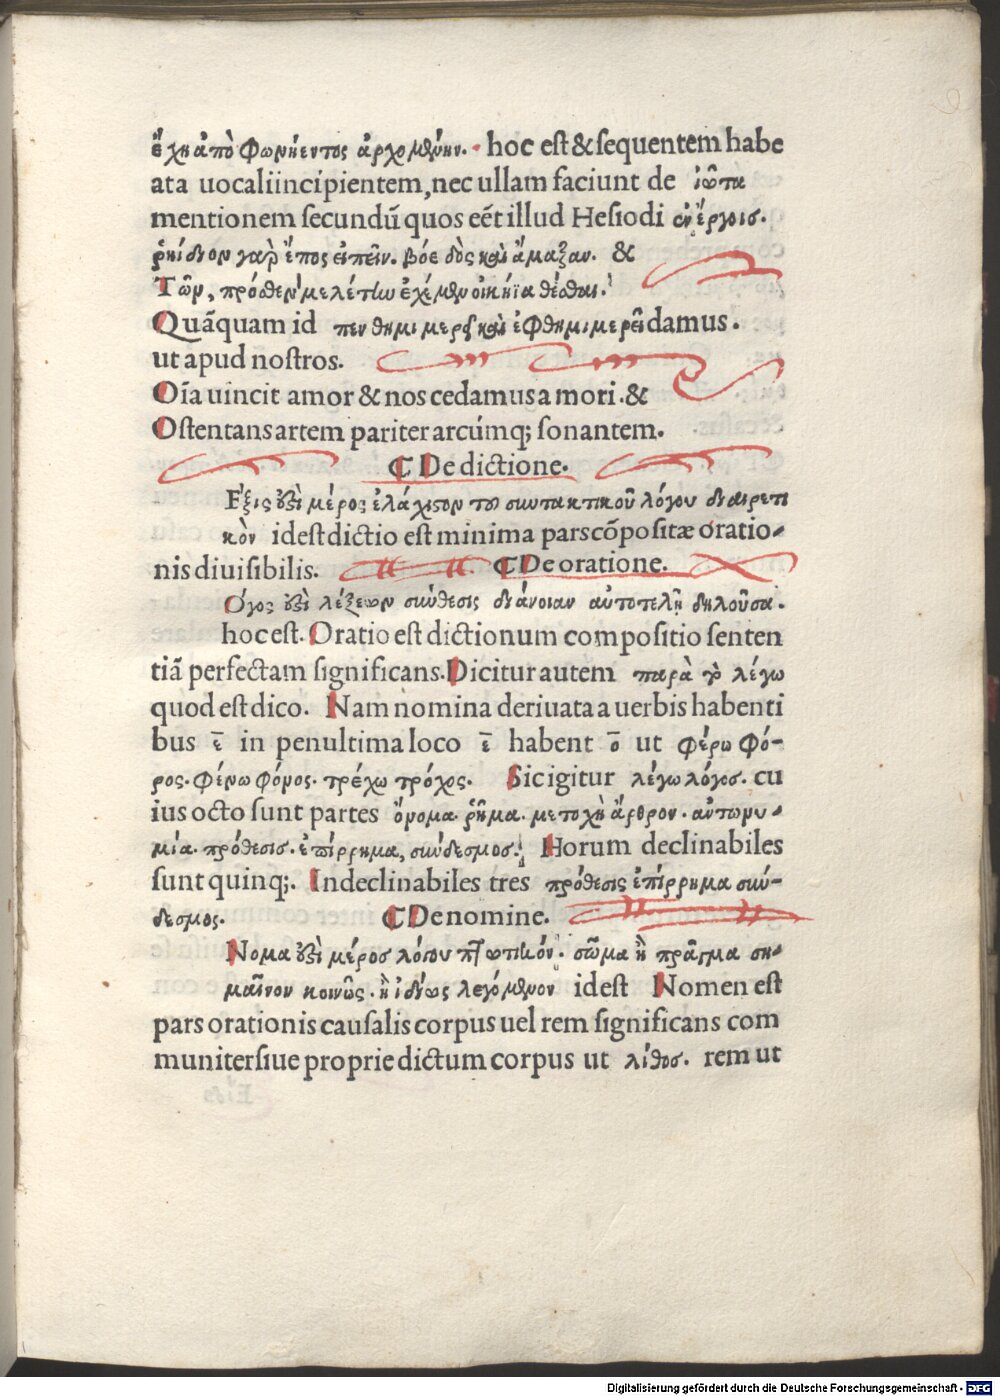 ἔχη ἀπὸ φωνήεντος ἀρχομένην. hoc est & sequentem habe
ata uocali incipientem, nec ullam faciunt de ἰῶτα
mentionem secundũ quos eẽt illud Hesiodi ἐν ἔργοις.
ῥηίδιον γὰρ ἔπος εἰπεῖν. βόε δὸς καὶ ἅμαξαν. &
Τῶν, πρόσθεν μελέτην ἐχέμεν οἰκήϊα θέσθαι.
Quãquam id πενθημιμερεῖ καὶ ἐφθημιμερεῖ damus.
ut apud nostros.
Oĩa uincit amor & nos cedamus amori. &
Ostentans artem pariter arcúmq; sonantem.
☾ De dictione.
Εξις ἐστὶ μέρος ἐλάχιστον τοῦ συντακτικοῦ λόγου διαιρετι
κὸν idest dictio est minima pars cõpositæ oratio-
nis diuisibilis. ☾ De oratione.
Ογος ἐστὶ λέξεων σύνθεσις διάνοιαν αὐτοτελῆ δηλοῦσα.
hoc est. Oratio est dictionum compositio senten
tiã perfectam significans. Dicitur autem παρὰ τὸ λέγω
quod est dico. Nam nomina deriuata a uerbis habenti
bus ē in penultima loco ē habent ō ut φέρω φό-
ρος. φένω φόνος. τρέχω τρόχος. Sic igitur λέγω λόγος. cu
ius octo sunt partes ὄνομα. ῥῆμα. μετοχὴ ἄρθρον. αὐτωνυ-
μία. πρόθεσις. ἐπίρρημα, σύνδεσμος. Horum declinabiles
sunt quinq;. Indeclinabiles tres πρόθεσις ἐπίρρημα σύν-
δεσμος. ☾ De nomine.
Νομα ἐστὶ μέρος λόγου πτωτικόν. σῶμα ἢ πρᾶγμα ση-
μαῖνον κοινῶς. ἢ ἰδίως λεγόμενον idest Nomen est
pars orationis causalis corpus uel rem significans com
muniter siue proprie dictum corpus ut λίθος. rem ut
Digitalisierung gefördert durch die Deutsche Forschungsgemeinschaft - DFG